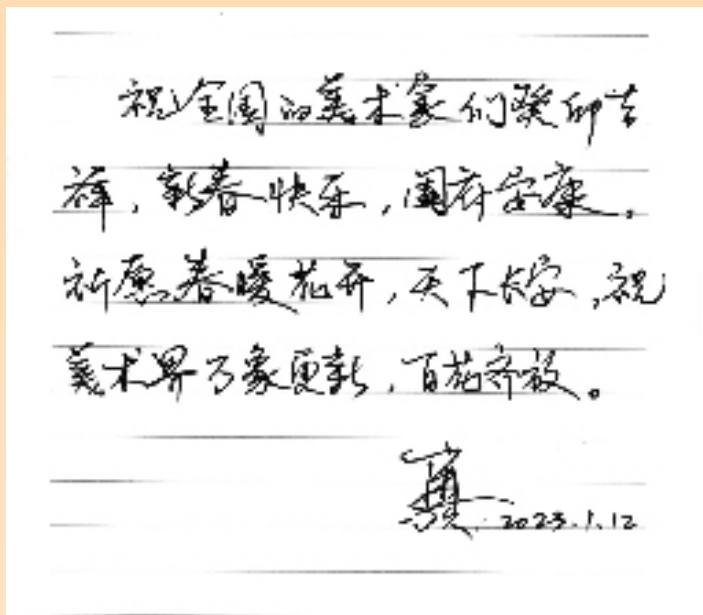 祝全国的美术家们癸卯吉
祥，新春快乐，阖府安康。
祈愿春暖花开，天下长安，祝
美术界万象更新，百花齐放。
2023.1.12